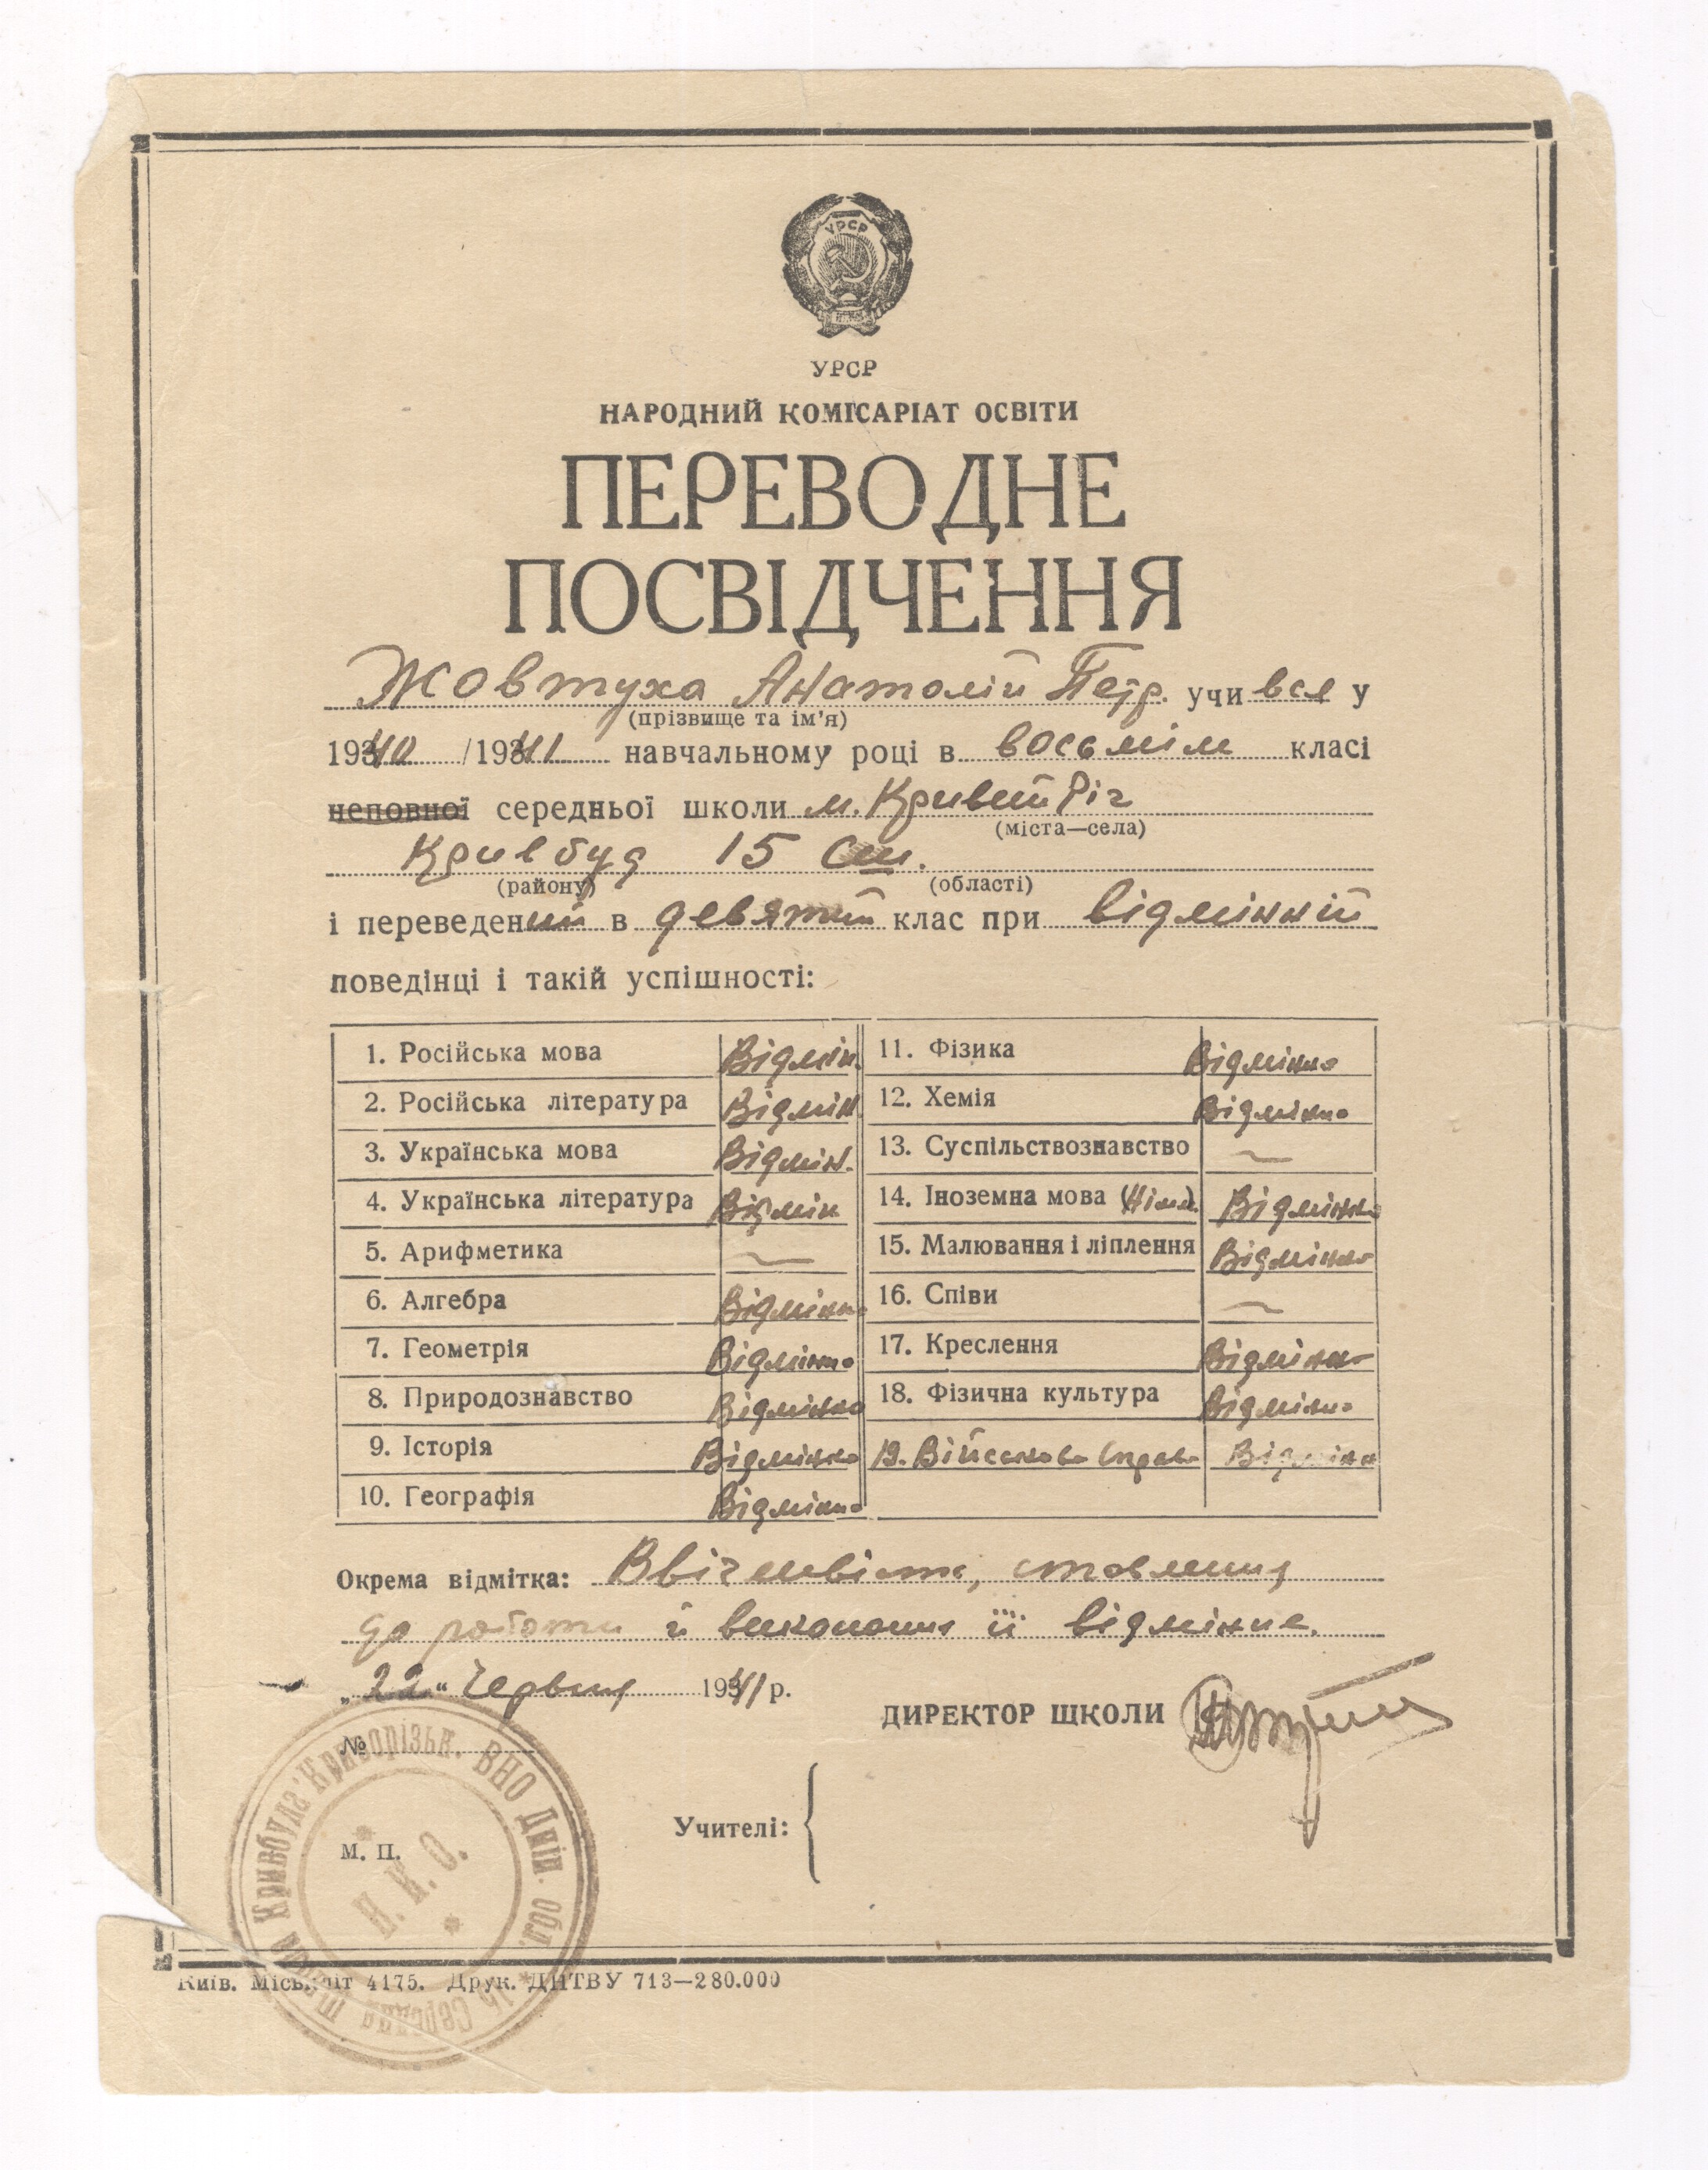 УРСР
УРСР
НАРОДНИЙ КОМІСАРІАТ ОСВІТИ
ПЕРЕВОДНЕ
ПОСВІДЧЕННЯ
Жовтуха Анатолій Петр. учився у
(прізвище та ім'я)
1940/1941 навчальному році в восьмім класі
неповної середньої школи м. Кривий Ріг
(міста—села)
Кривбуд 15 сш.
(району) (області)
і переведений в девятий клас при відмінній
поведінці і такій успішності:
1. Російська мова Відмін.
2. Російська література Відмін
3. Українська мова Відмін.
4. Українська література Відмін
5. Арифметика —
6. Алгебра Відмінно
7. Геометрія Відмінно
8. Природознавство Відмінно
9. Історія Відмінно
10. Географія Відмінно
11. Фізика Відмінно
12. Хемія Відмінно
13. Суспільствознавство —
14. Іноземна мова (Нім.) Відмінно
15. Малювання і ліплення Відмінно
16. Співи —
17. Креслення Відмінно
18. Фізична культура Відмінно
19. Військова справа Відмінн
Окрема відмітка: Ввічливість, ставлення
до роботи й виконання її відмінне.
„22" Червня 1941 р.
ДИРЕКТОР ШКОЛИ
№
Учителі:
М. П.
15 Середня школа Кривбуда Криворізьк. ВНО Дніп. обл.
Н. К. О.
Київ. Міськліт 4175. Друк. ДНТВУ 713—280.000